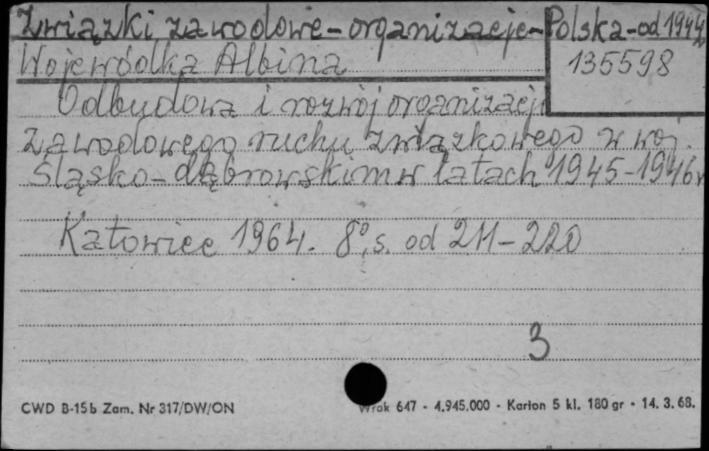 Związki zawodowe-organizacje-Polska-od 1944
Wojewódka Albina
135598
Odbudowa i rozwój organizacji
zawodowego ruchu związkowego w woj.
Śląsko-dąbrowskim w latach 1945-1946r
Katowice 1964. 8°, s. od 211-220
3
CWD B-15b Zam. Nr 317/DW/ON
647 - 4.945.000 - Karton 5 kl. 180 gr - 14. 3. 68.